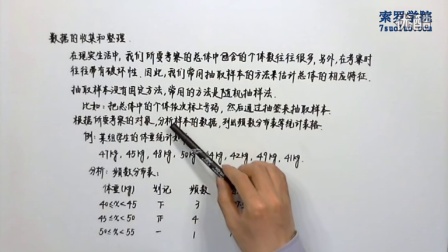 索罗学院
7suoluo.com
数据的收集和整理
在现实生活中，我们所要考察的总体中包含的个体数往往很多，另外，在考察时
往往带有破坏性。因此，我们常用抽取样本的方法来估计总体的相应特征。
抽取样本没有固定方法，常用的方法是随机抽样法。
比如：把总体中的个体依次标上号码，然后通过抽签来抽取样本。
根据所要考察的对象，分析样本的数据，列出频数分布表等统计表格。
例：某组学生的体重统计
47kg, 45kg, 48kg, 50kg, 42kg, 49kg, 41kg.
分析：频数分布表：
体重(kg) 划记 频数
40≤x<45 下 3
45≤x<50 正 4
50≤x<55 一 1